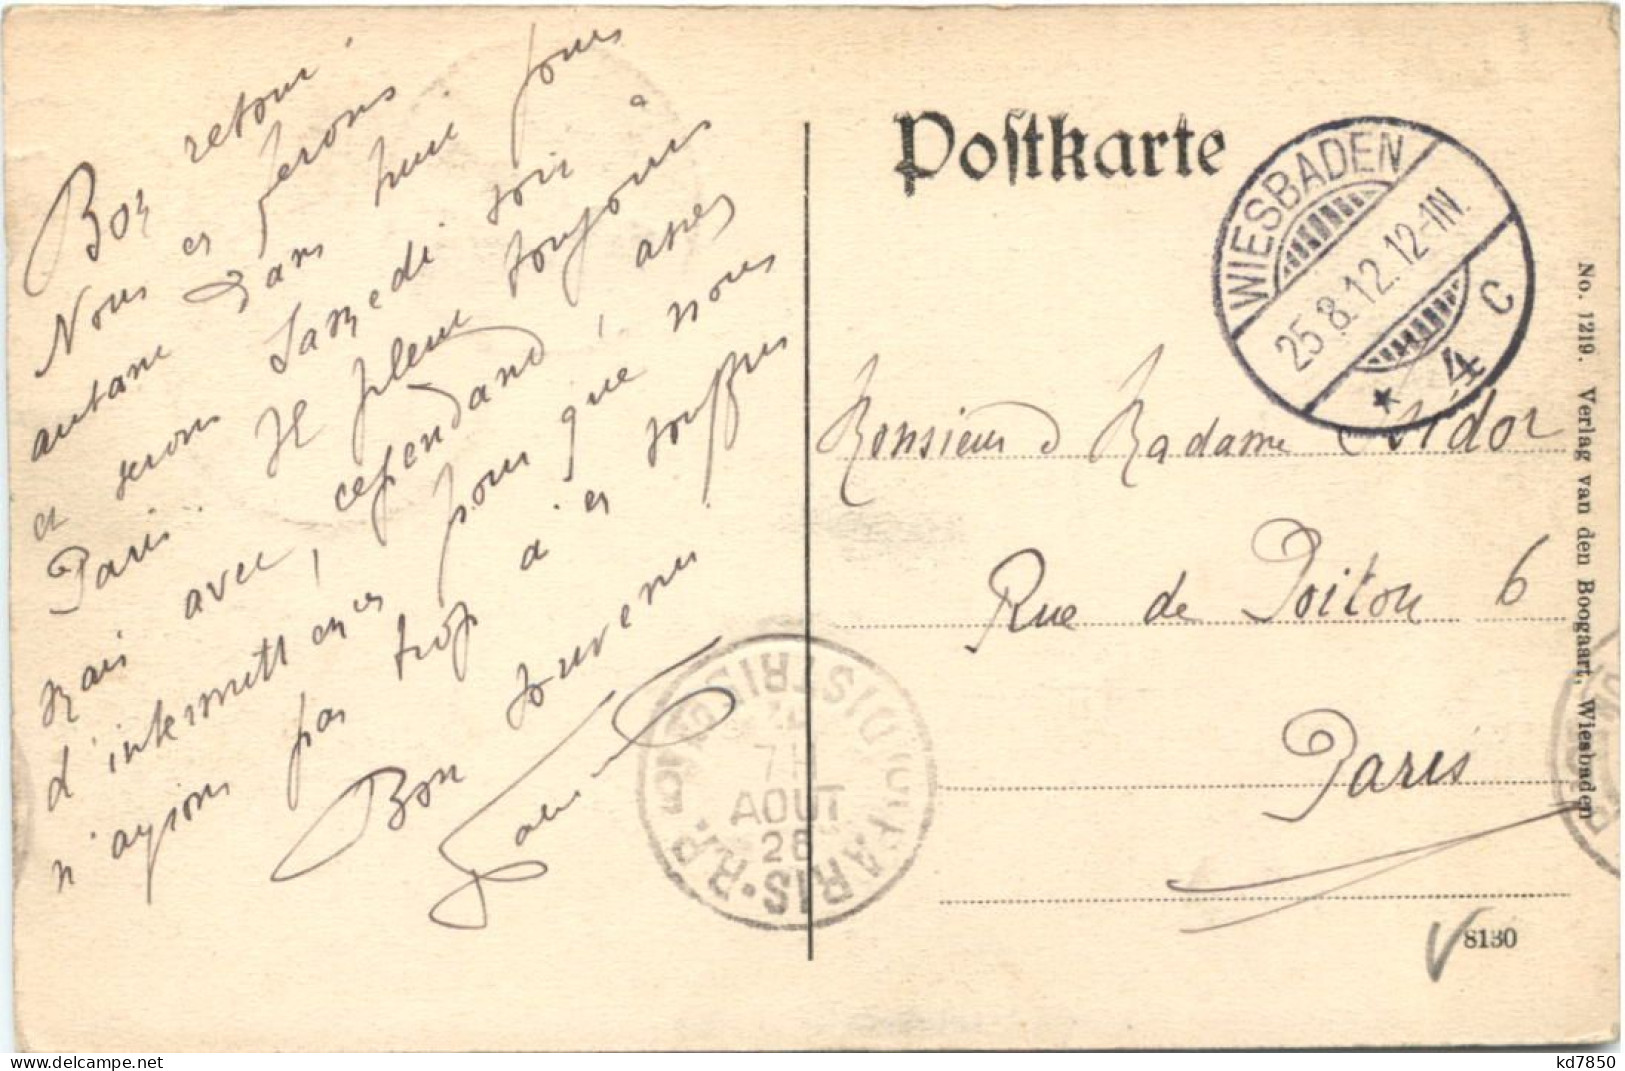 Bon retour
Nous en ferons
autant dans huit jours
et serons Samedi soir à
Paris. Il pleut toujours
mais avec, cependant, assez
d'intermittences pour que nous
n'ayions pas trop à en souffrir
Bon souvenir
Postkarte
WIESBADEN
25.8.12.12-1N.
* 4 c
Monsieur & Madame
Rue de Poitou 6
Paris
PARIS · R.P.
DISTRIB
AOUT
28
No. 1219. Verlag van den Boogaart, Wiesbaden
8130
oldthing.de
kd7850